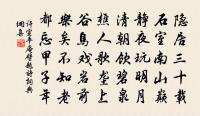 隱居三十載
石室南山巔
靜夜玩明月
清朝飲碧泉
樵人歌壟上
谷鳥戲巖前
樂矣不知老
都忘甲子年
許宣平庵壁題詩詞典
網集